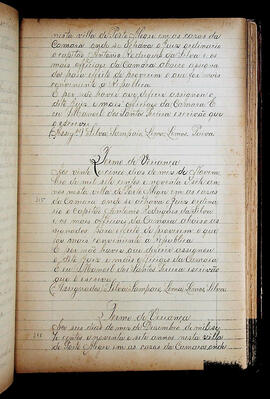 nesta villa de Porto Alegre em as cazas da
Camara onde se achava o Juiz ordinario
o capitão Antonio Rodrigues da Silva e os
mais officiaes da Camara abaixo assigna
dos para efeito de proverem o que for mais
conveniente a Republica
E por não haver que deferir assignou o
dito Juiz e mais officiaes da Camara E
eu Manoel dos Santos Pereira escrivão que
o escrevi
Silva Sampaio Lemos Lemos Paiva
Termo de Vriança
Aos vinte e cinco dias do mez de Novem
bro de mil sete centos e noventa e sete an
nos nesta villa de Porto Alegre em as cazas
da Camara onde se achava o Juiz ordi
nario o Capitão Antonio Rodrigues da Silva
e os mais officiaes da Camara abaixo as
signados para efeito de proverem o que
for mais conveniente a Republica
E por não haver que deferir assignou
o dito Juiz e mais officiaes da Camara
E eu Manoel dos Santos Pereira escrivão
que o escrevi
Assignados Silva Sampaio Lemos Lemos Silva
Termo de Vriança
Aos seis dias do mez de Dezembro de mil se
te centos e noventa e sete annos nesta villa
de Porto Alegre em as cazas da Camara onde